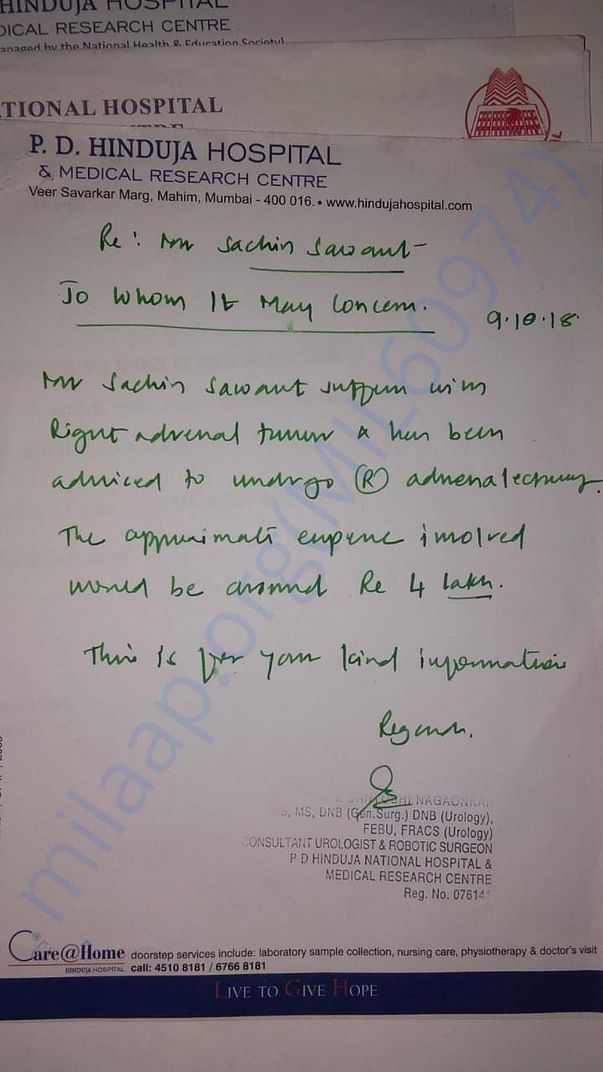 HINDUJA HOSPITAL
DICAL RESEARCH CENTRE
anaged by the National Health & Education Society)
TIONAL HOSPITAL
P. D. HINDUJA HOSPITAL
& MEDICAL RESEARCH CENTRE
Veer Savarkar Marg, Mahim, Mumbai - 400 016. • www.hindujahospital.com
Re: Mr Sachin Sawant
To Whom It May Concern.
9.10.18
Mr Sachin Sawant suffers with
Right adrenal tumor & has been
adviced to undrgo (R) adrenalectomy.
The approximate expense involved
would be around Rs 4 lakh.
This is for your kind information
Regards.
SANTOSHI NAGAONKAR
S, MS, DNB (Gen.Surg.) DNB (Urology),
FEBU, FRACS (Urology)
CONSULTANT UROLOGIST & ROBOTIC SURGEON
P D HINDUJA NATIONAL HOSPITAL &
MEDICAL RESEARCH CENTRE
Reg. No. 076141
milaap.org(MIL60974)
Care@Home doorstep services include: laboratory sample collection, nursing care, physiotherapy & doctor's visit
HINDUJA HOSPITAL call: 4510 8181 / 6766 8181
LIVE TO GIVE HOPE